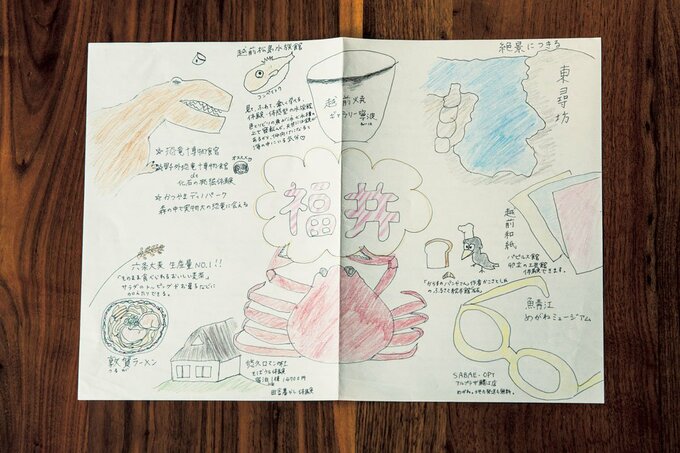 越前松島水族館
コンペイトウ
見て、ふれて、楽しく学べる、
体験・体感型の水族館
海の中にいる気分♡
越前焼
ギャラリー寧波
絶景につきる
東尋坊
☆恐竜博物館
☆野外恐竜博物館
オススメ
de
化石の発掘体験
☆かつやまディノパーク
森の中で実物大の恐竜に会える
福井
越前和紙
パピルス館
卯立の工芸館
体験できます。
「からすのパンやさん」作者かこさとしの
ふるさと絵本館
六条大麦 生産量NO.1!!
「そのまま食べられるおいしい麦茶」
サラダのトッピングやお菓子などに
敦賀ラーメン
つるが
悠久ロマンの杜
そばうち体験
田舎暮らし体験
魚青江
めがねミュージアム
SABAE-OPT
アルプラザ鯖江店